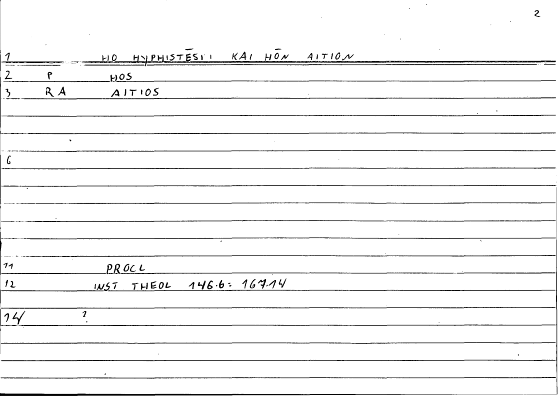 2
1 HO HYPHISTĒSI: KAI HŌN AITION
2 P HOS
3 RA AITIOS
6
11 PROCL
12 INST THEOL 146.6: 167.14
14/ 1